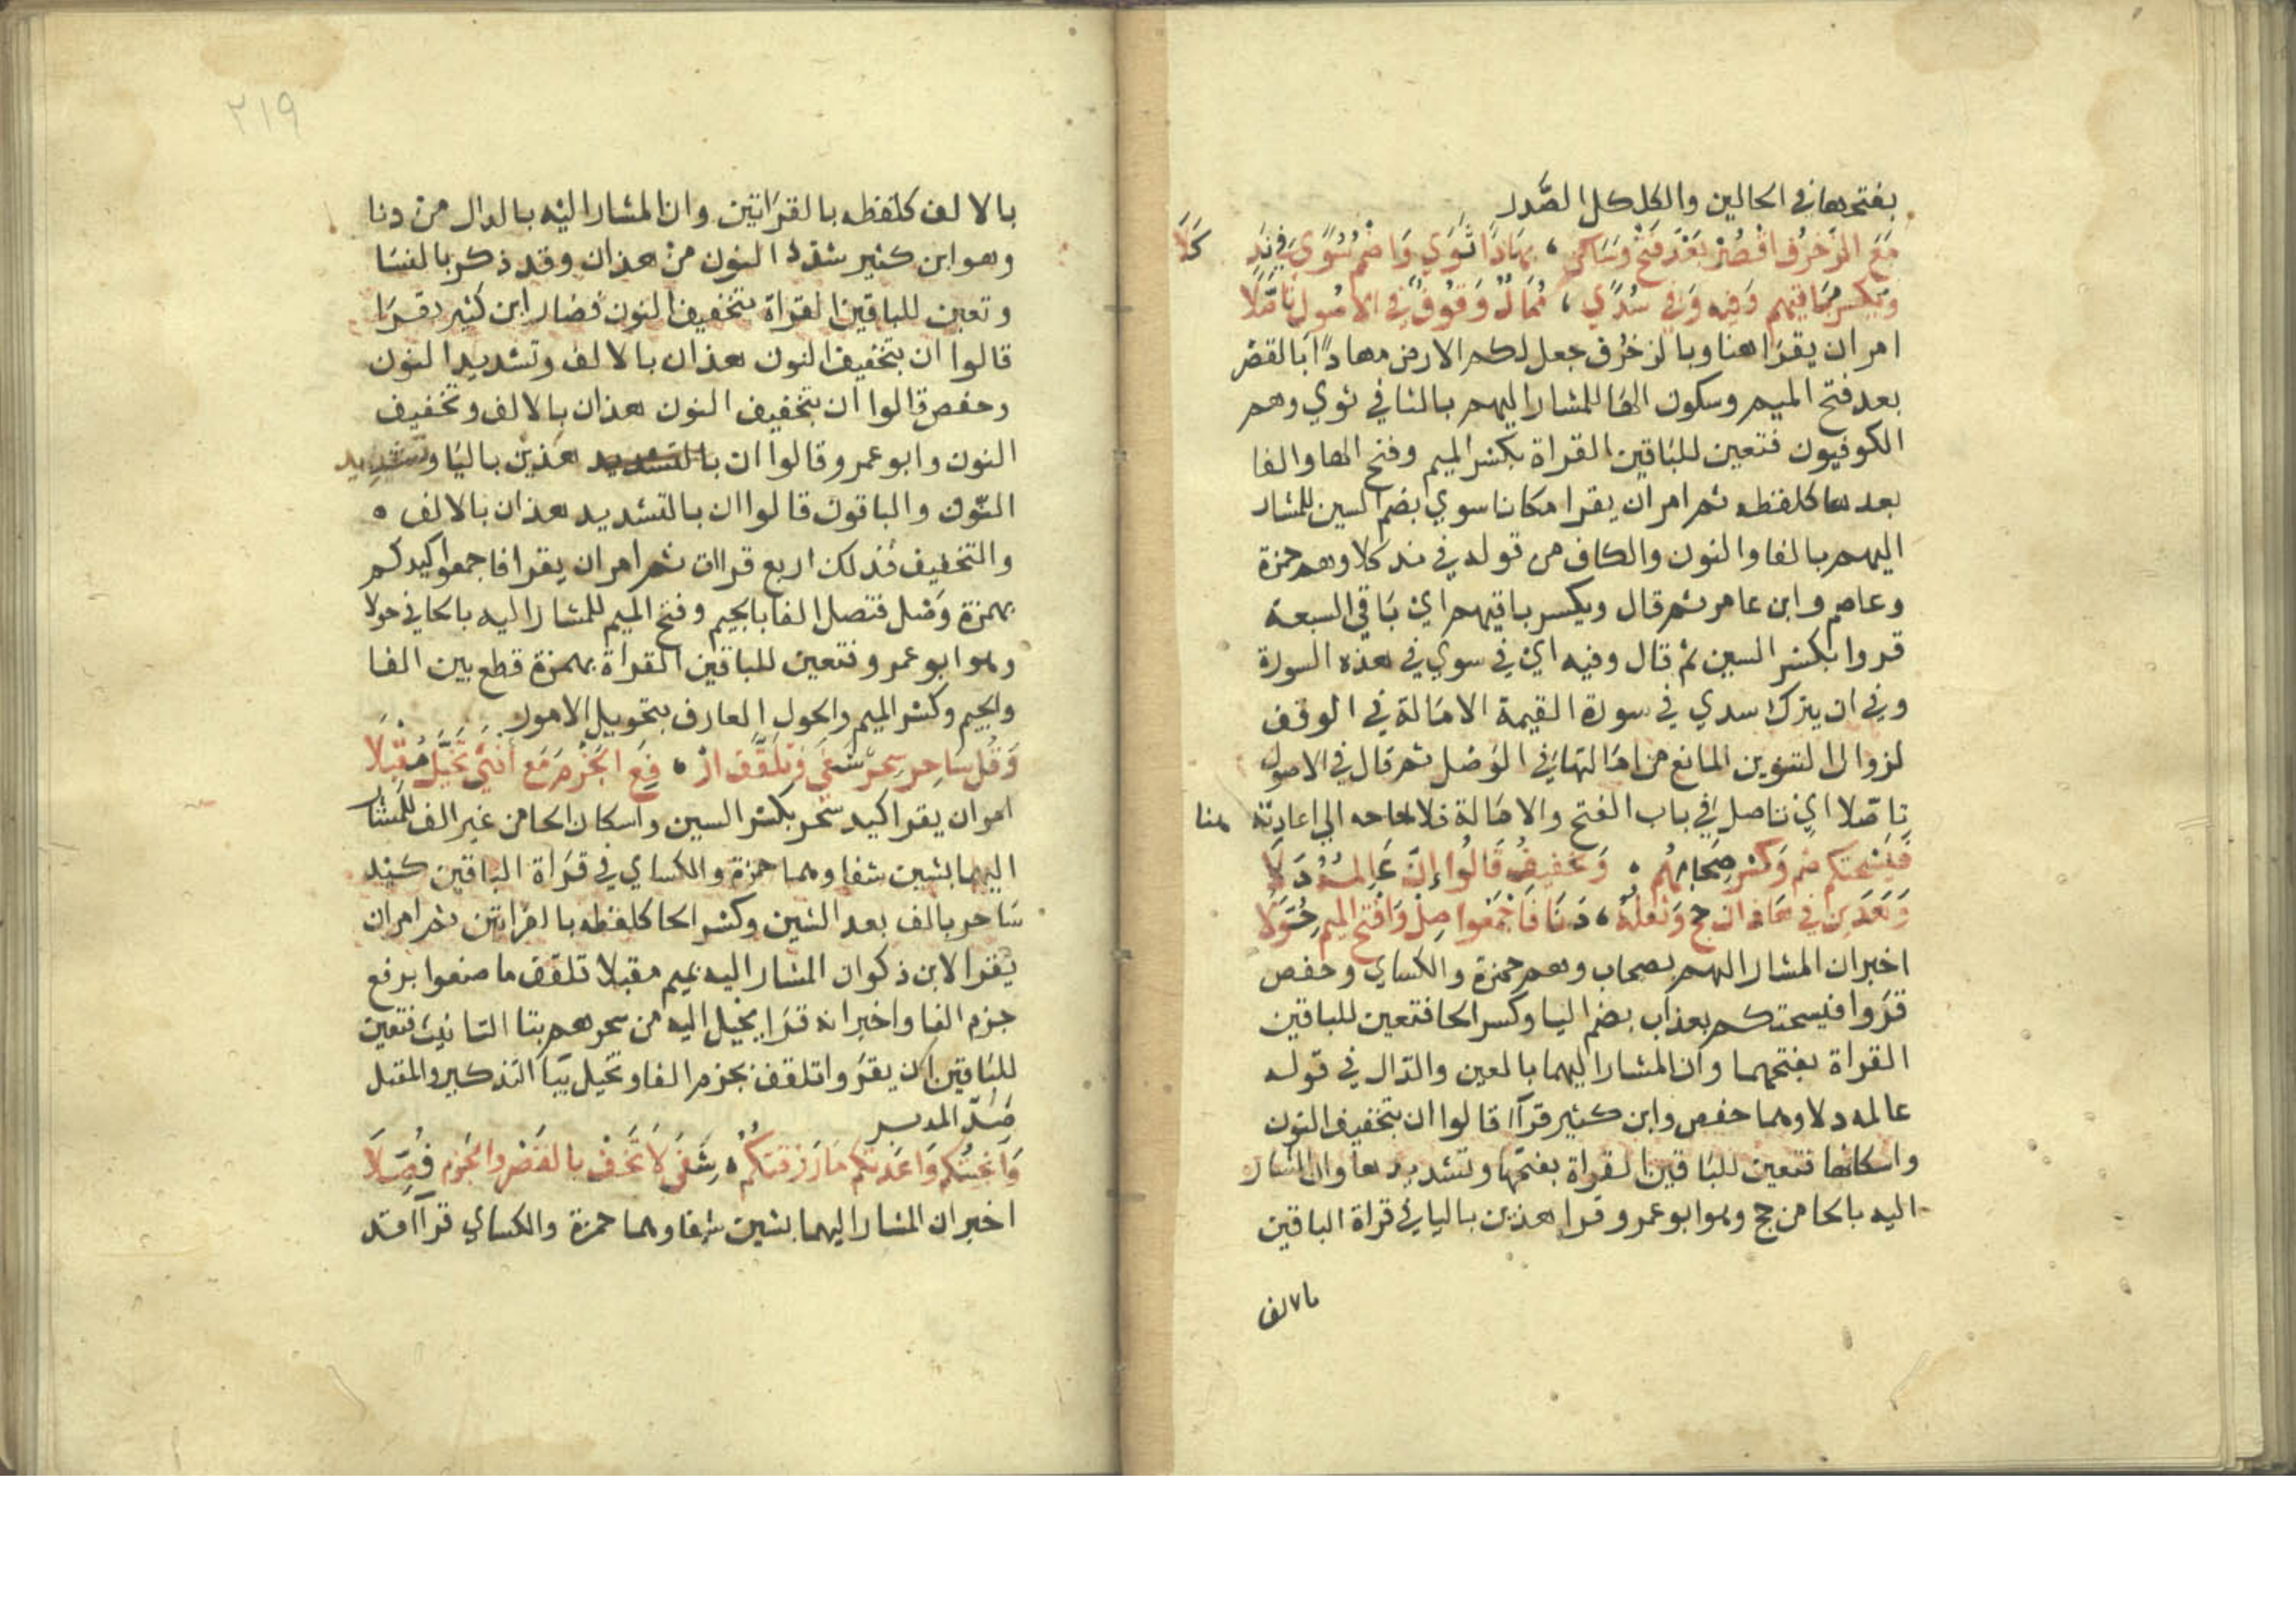 بفتحها في الحالين والكلكل الصَّدر
مَعَ الزُّخْرُفِ اقْصُرْ بَعْدَ فَتْحٍ وَسَاكِنٍ ، مِهَادًا ثَوَي وَاضْمُمْ سُوًي فِي نَدٍ كَلَا
وَيَكْسِرُ بَاقِيهِمْ وَفِيهِ وَفِي سُدًي ، مُمَالُ وُقُوفٍ فِي الاصُولِ تَأَصَّلَا
امر ان يقرا هنا وبالزخرف جعل لكم الارض مهادًا بالقصر
بعد فتح الميم وسكون الها للمشار اليهم بالثا في ثوي وهم
الكوفيون فتعين للباقين القراة بكسر الميم وفتح الها والفا
بعدها كلفظه ثم امر ان يقرا مكانا سوي بضم السين للمشار
اليهم بالفا والنون والكاف من قوله في ند كلا وهم حمزة
وعاصم وابن عامر ثم قال ويكسر باقيهم اي باقي السبعة
قروا بكسر السين ثم قال وفيه اي في سوي في هذه السورة
وفي ان يترك سدي في سورة القيمة الامالة في الوقف
لزوال التنوين المانع من امالتها في الوصل ثم قال في الاصول
تاصلا اي تاصل في باب الفتح والامالة فلا حاجه الي اعادته هنا
فَيُسْحِتَكُم ضَمٌ وَكَسْرٌ صِحَابُهُم ، وَتَخْفِيفُ قَالُوا إِنَّ عَالِمُهُ دَلَا
وَهَذَيْنِ فِي هَذَانِ حَجَّ وَثِقْلُهُ ، دَنَا فَاجْمَعُوا صِلْ وَافْتَحِ الميم حُوَّلَا
اخبر ان المشار اليهم بصحاب وهم حمزة والكساي وحفص
قروا فيسحتكم بعذاب بضم اليا وكسر الحا فتعين للباقين
القراة بفتحهما وان المشار اليهما بالعين والدال في قوله
عالمه دلا وهما حفص وابن كثير قراا قالوا ان بتخفيف النون
واسكانها فتعين للباقين القراة بفتحها وتشديدها وان المشار
اليه بالحا من حج وهو ابو عمرو قرا هذين باليا في قراة الباقين
بالالف
٢١٩
بالالف كلفظه بالقراتين وان المشار اليه بالدال من دنا
وهو ابن كثير شدد النون من هذان وقد ذكر بالنسا
وتعين للباقين القراة بتخفيف النون فصار ابن كثير يقرا
قالوا ان بتخفيف النون هذان بالالف وتشديد النون
وحفص قالوا ان بتخفيف النون هذان بالالف وتخفيف
النون وابو عمرو قالوا ان بالتشديد هذين باليا وتشديد
النون والباقون قالوا ان بالتشديد هذان بالالف ه
والتخفيف فذلك اربع قراات ثم امر ان يقرا فاجمعوا كيدكم
بهمزة وصل فتصل الفا بالجيم وفتح الميم للمشار اليه بالحا في حولا
وهو ابو عمرو فتعين للباقين القراة بهمزة قطع بين الفا
والجيم وكسر الميم والحول العارف بتحويل الامور
وَقُل سَاحِرٍ سِحْرٍ شَفَي وَتَلَقَّفُ ارْ ، فَعِ الجَزْمَ مَع أُنْثَي تُخَيَّلُ مُقْبِلَا
امر ان يقرا كيد سحر بكسر السين واسكان الحا من غير الف للمشار
اليهما بشين شفا وهما حمزة والكساي في قراة الباقين كيد
ساحر بالف بعد السين وكسر الحا كلفظه بالقراتين ثم امر ان
يقرا لابن ذكوان المشار اليه بميم مقبلا تلقف ما صنعوا برفع
جزم الفا واخبر انه قرا يخيل اليه من سحرهم بتا التانيث فتعين
للباقين ان يقروا تلقف بجزم الفا ويخيل بيا التذكير والمقبل
ضدّ المدبر
وَأَنْجَيْتُكُمْ وَاعَدْتُكُم مَا رَزَقْتُكُمْ ، شَفَي لَا تَخَفْ بالقَصْرِ وَالجَزْمِ فُصِّلَا
اخبر ان المشار اليهما بشين شفا وهما حمزة والكساي قراا قد